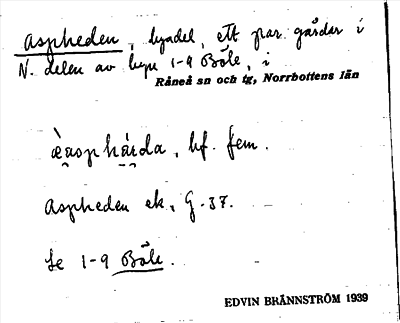 Aspheden, byadel, ett par gårdar i
N. delen av byn 1-9 Böle, i
Råneå sn och tg, Norrbottens län
æ̀asphárda, bf. fem.
Aspheden ek., G-37.
Se 1-9 Böle.
EDVIN BRÄNNSTRÖM 1939